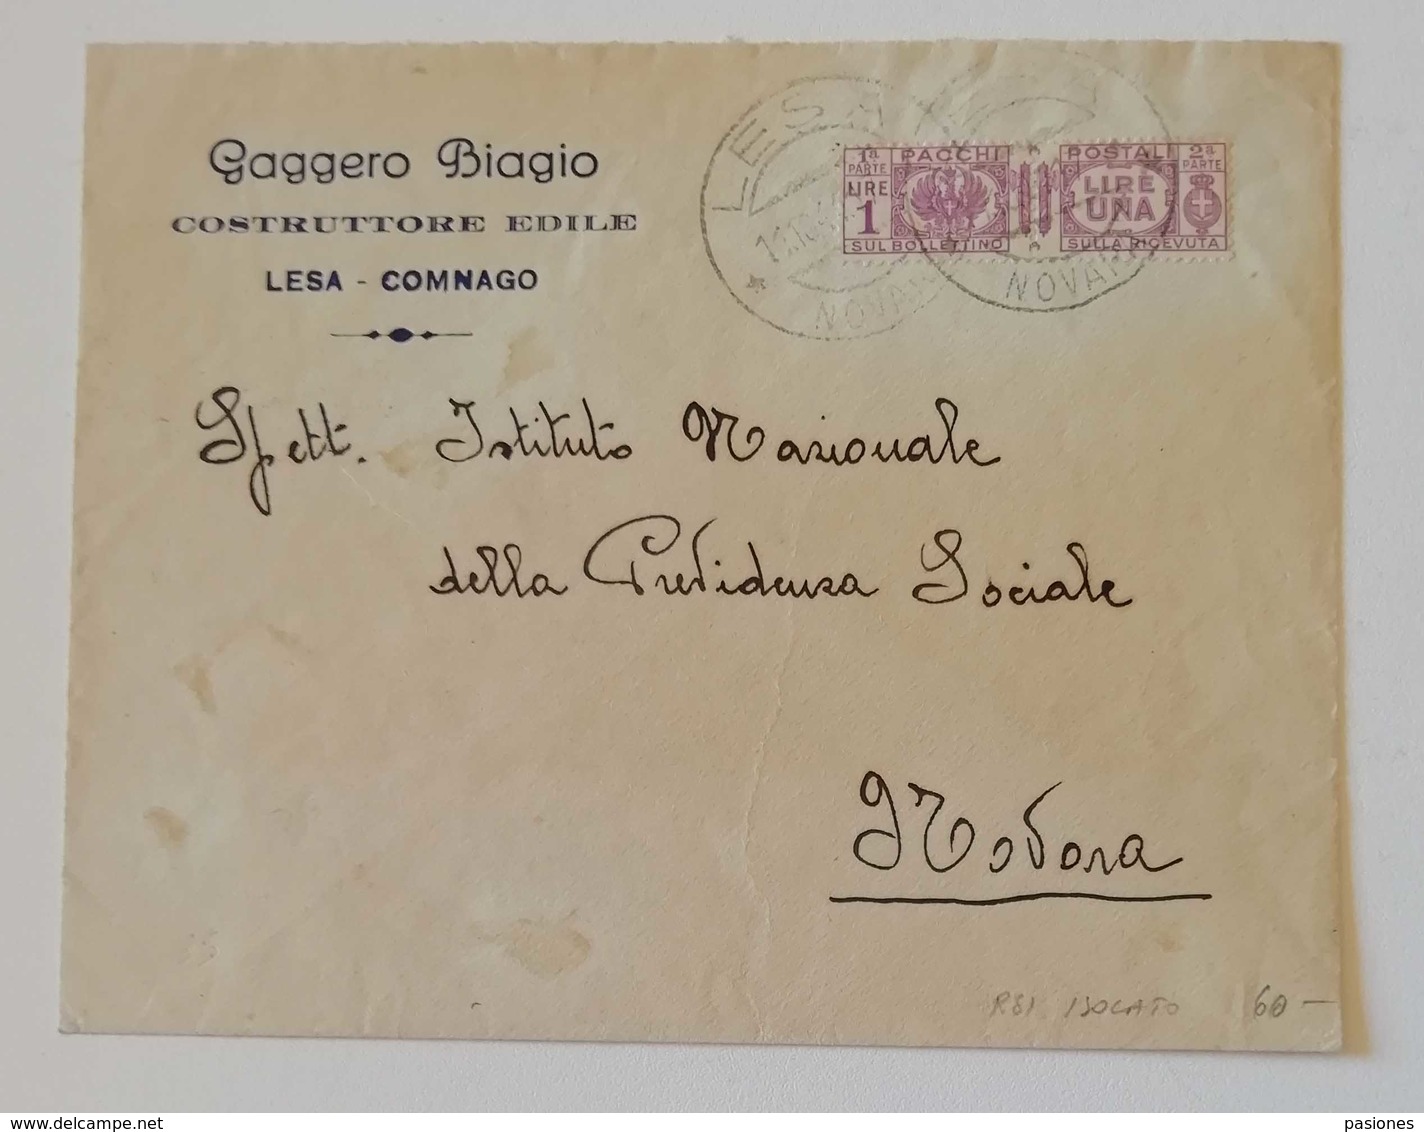 Gaggero Biagio
COSTRUTTORE EDILE
LESA - COMNAGO
LESA
NOVARA
NOVARA
1ª PARTE PACCHI POSTALI 2ª PARTE
LIRE 1 LIRE UNA
SUL BOLLETTINO SULLA RICEVUTA
Spett. Istituto Nazionale
della Previdenza Sociale
Novara
RSI ISOLATO 60-
www.delcampe.net
pasiones